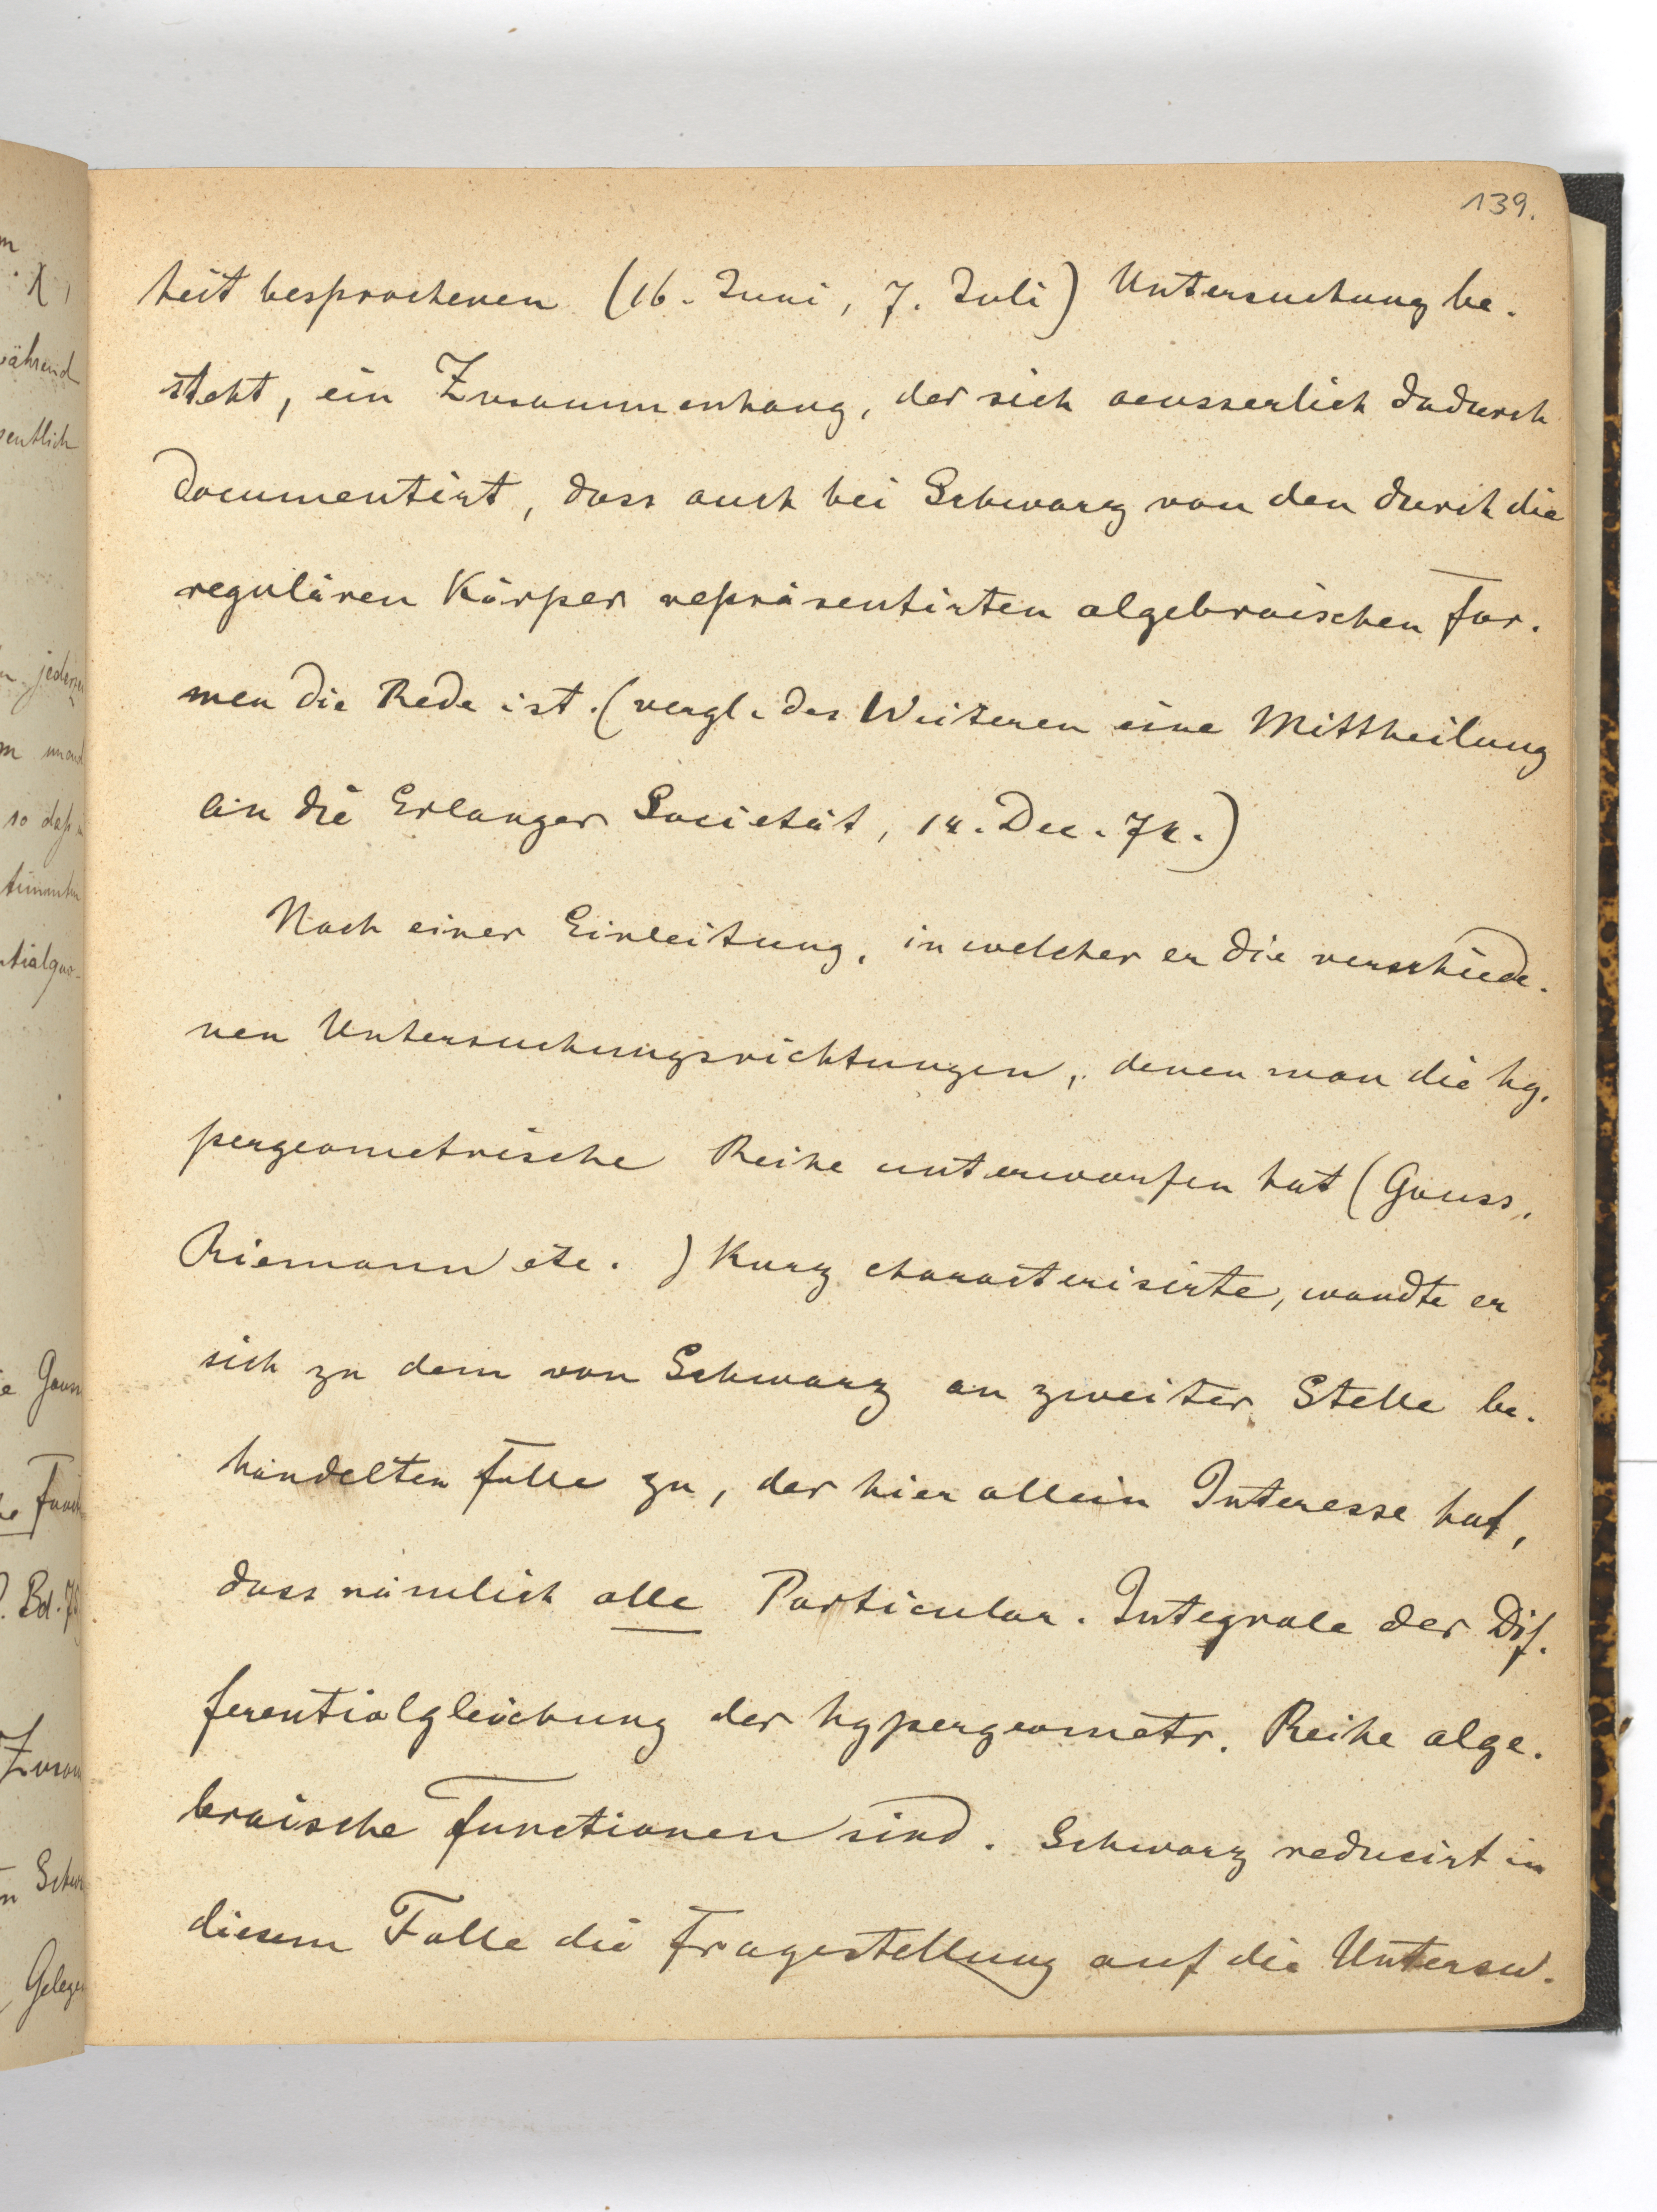 139.
heit besprochenen (16. Juni, 7. Juli) Untersuchung be-
steht, ein Zusammenhang, der sich aeusserlich dadurch
documentirt, dass auch bei Schwarz von den durch die
regulären Körper repräsentirten algebraischen For-
men die Rede ist. (vergl. des Weiteren eine Mittheilung
an die Erlanger Societät, 14. Dec. 74.)
Nach einer Einleitung, in welcher er die verschiede-
nen Untersuchungsrichtungen, denen man die hy-
pergeometrische Reihe unterworfen hat (Gauss,
Riemann etc.) kurz characterisirte, wandte er
sich zu dem von Schwarz an zweiter Stelle be-
handelten Falle zu, der hier allein Interesse hat,
dass nämlich alle Particular-Integrale der Dif-
ferentialgleichung der hypergeometr. Reihe alge-
braische Functionen sind. Schwarz reducirt in
diesem Falle die Fragestellung auf die Untersu-